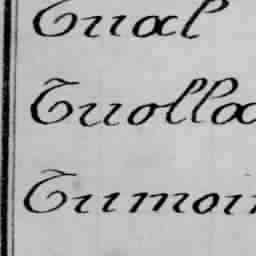 Tual
Tuolla
Tumoin